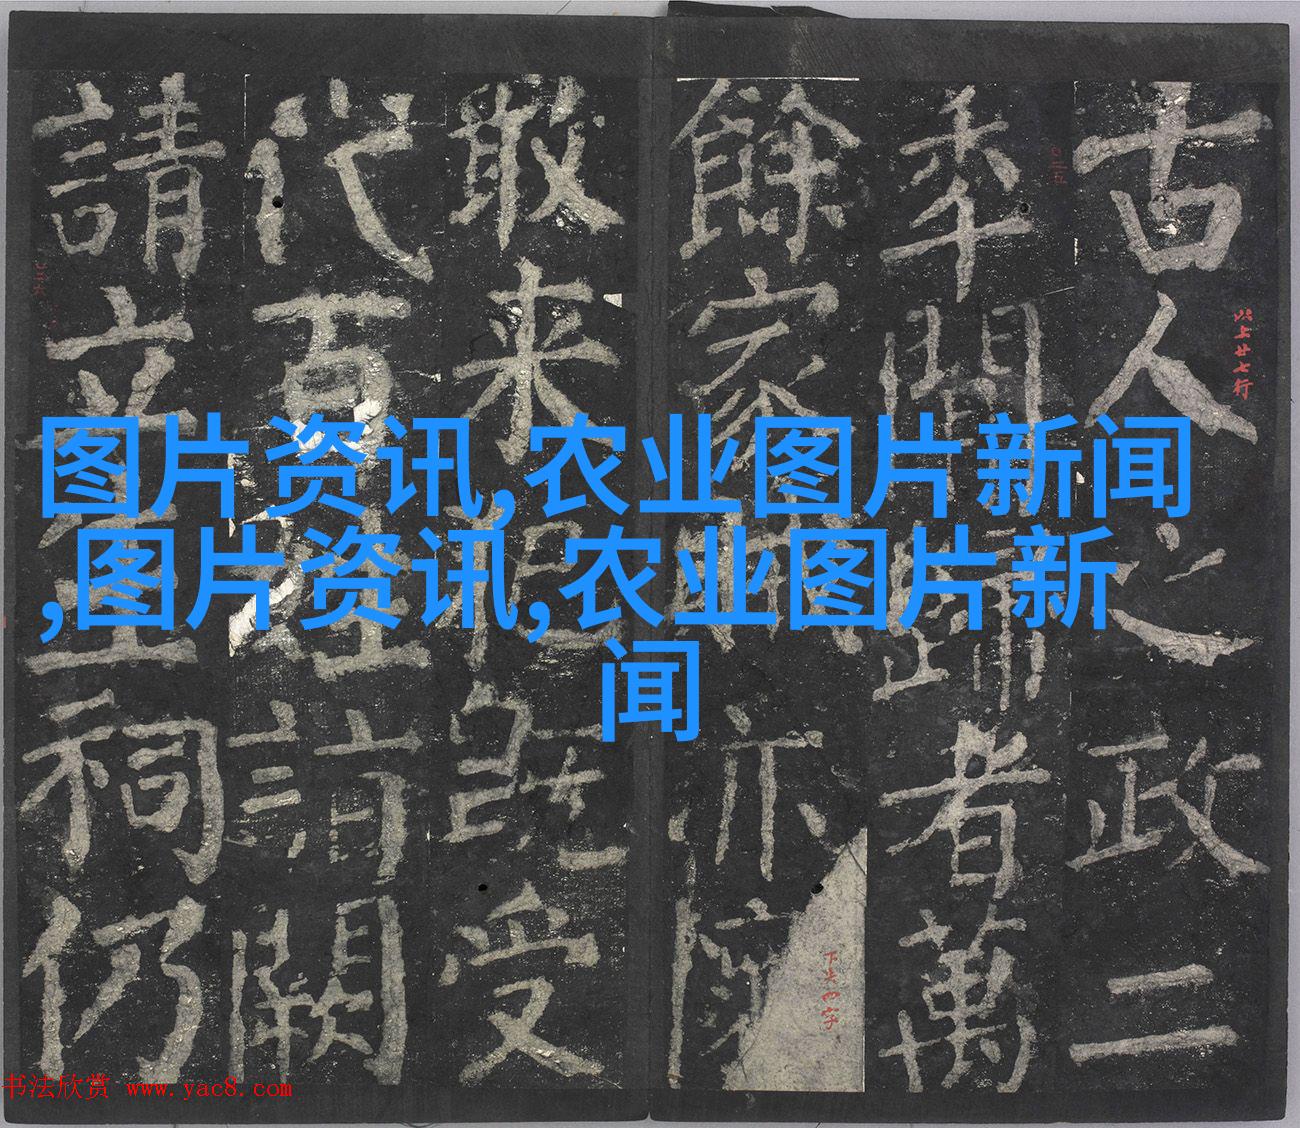 古人之政二
以上廿七行
年間歸者萬
餘家亦
下失四字
敢来既受
代百姓詣闕
請立生祠仍
图片资讯,农业图片新闻
,图片资讯,农业图片新
闻
书法欣赏 www.yac8.com